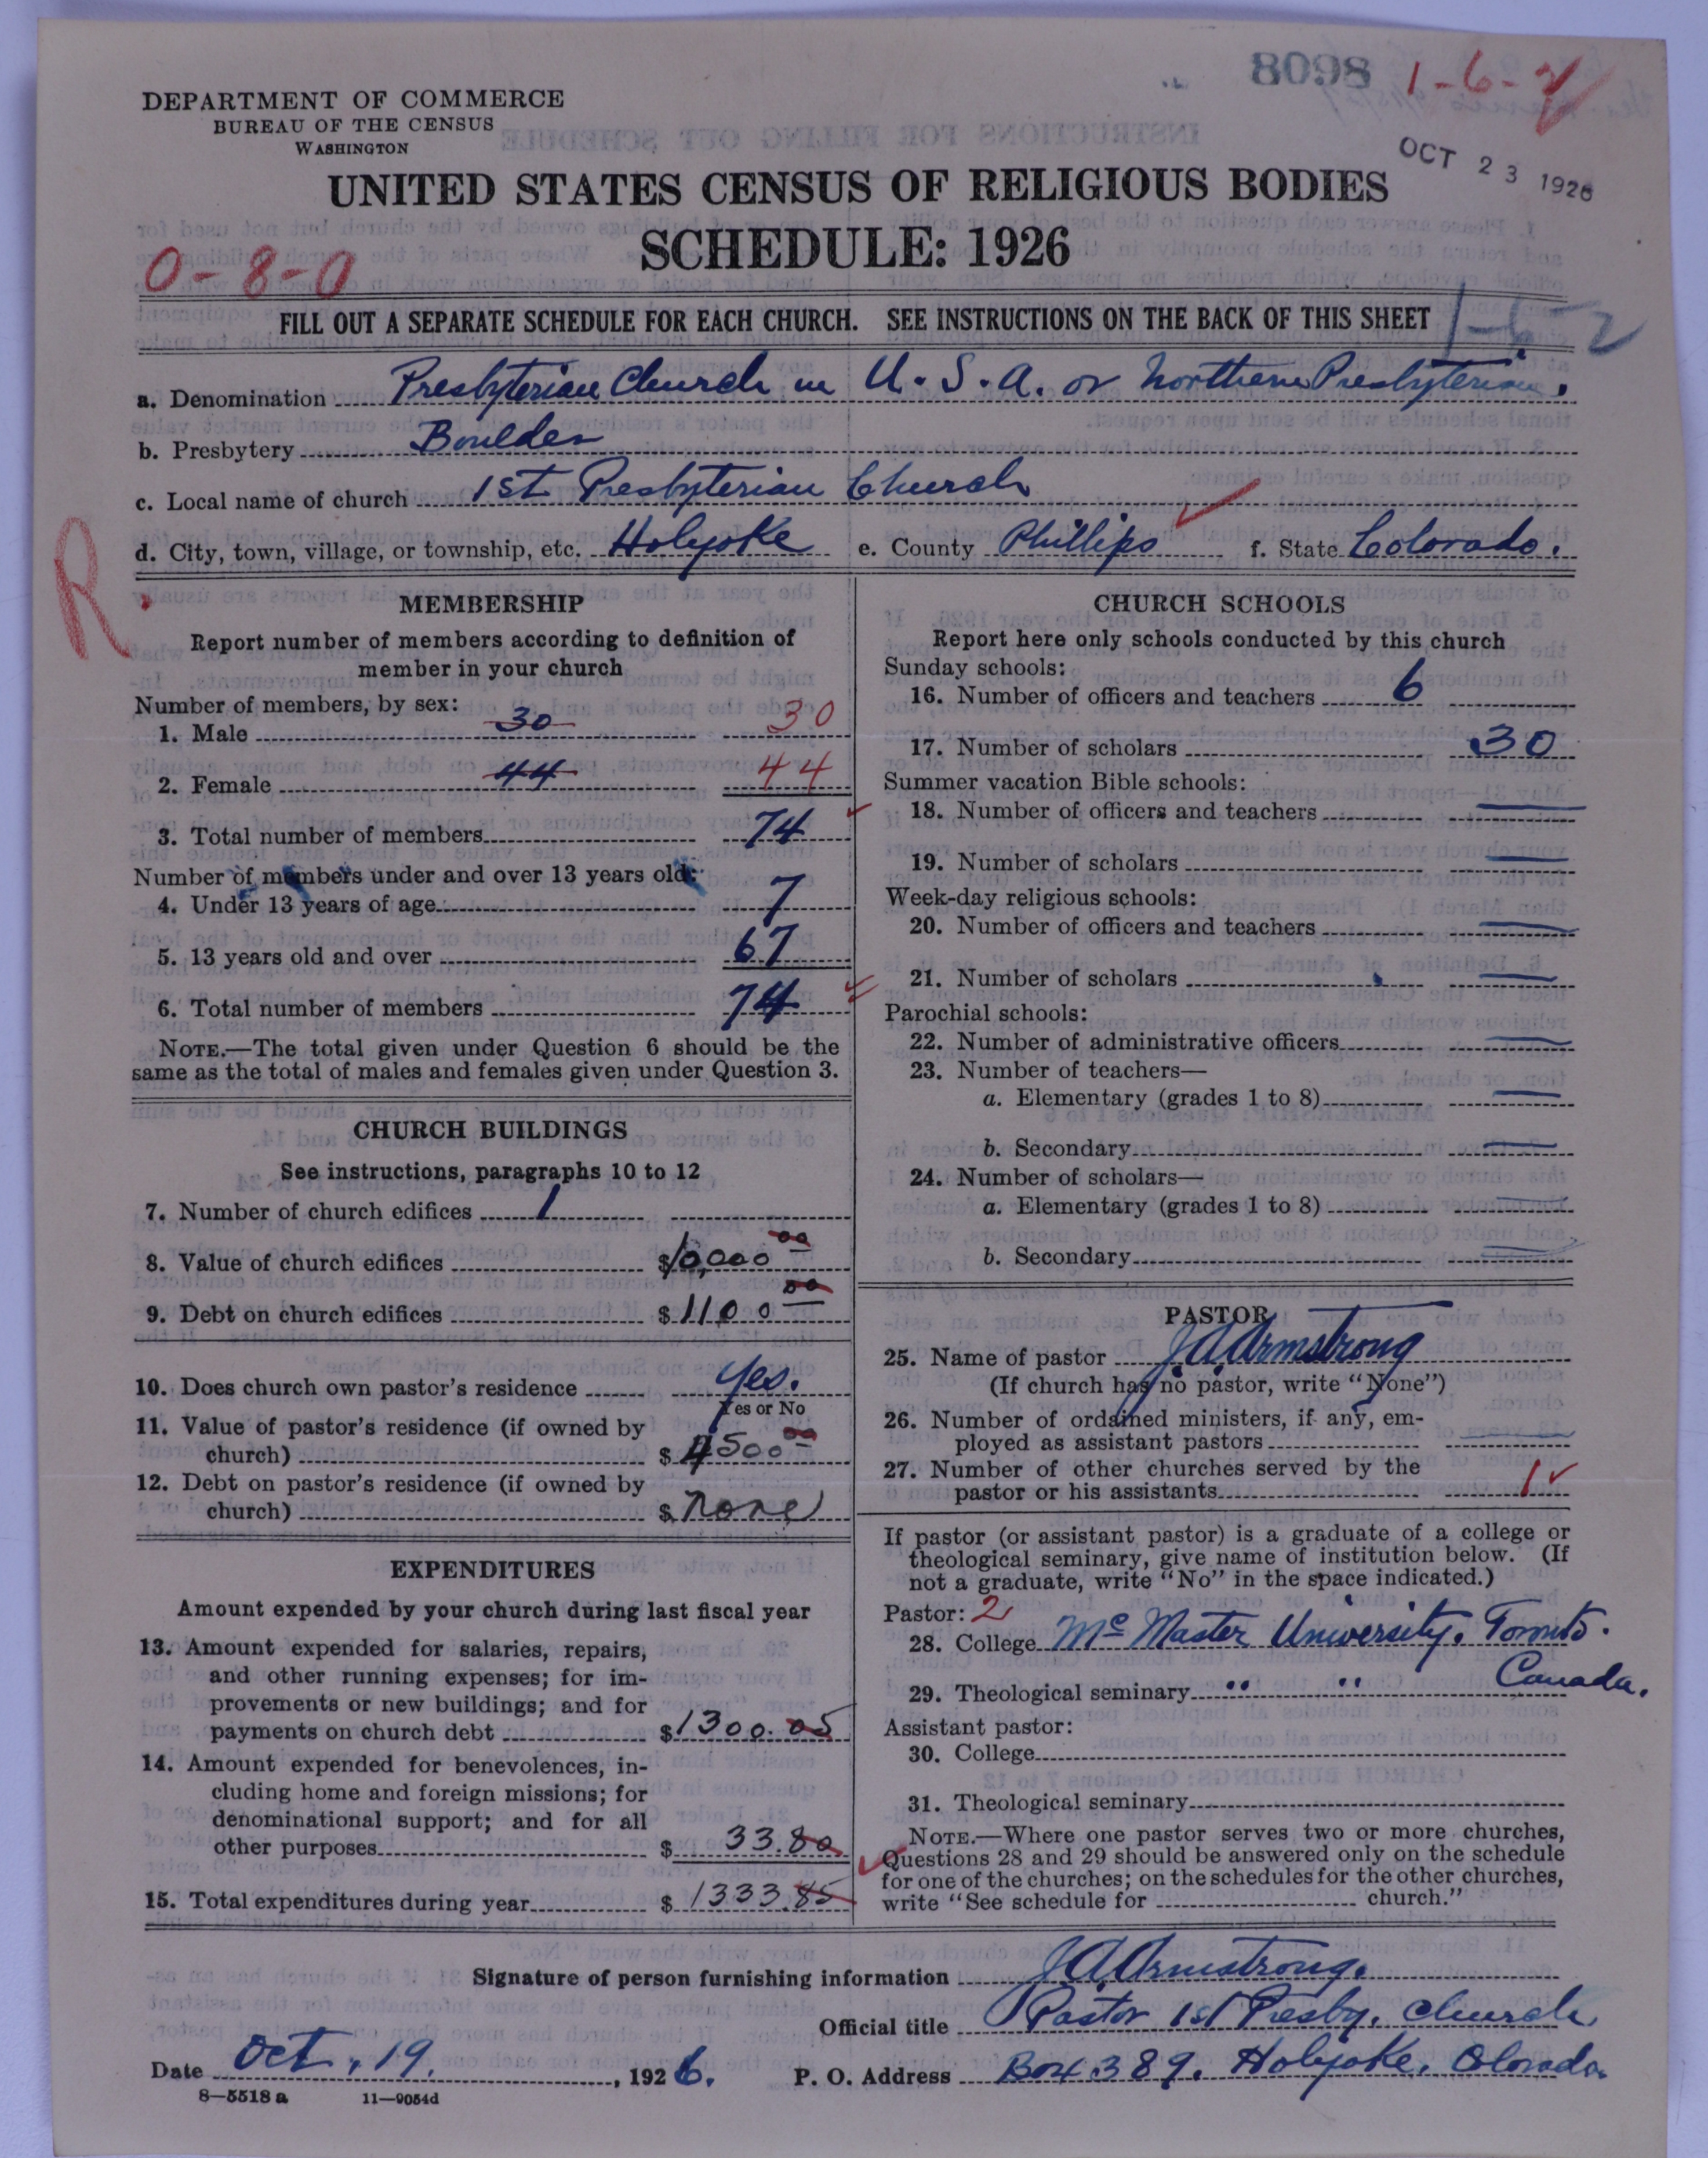 8098 1-6-2
DEPARTMENT OF COMMERCE
BUREAU OF THE CENSUS
WASHINGTON
OCT 23 1926
UNITED STATES CENSUS OF RELIGIOUS BODIES
SCHEDULE: 1926
0-8-0
FILL OUT A SEPARATE SCHEDULE FOR EACH CHURCH. SEE INSTRUCTIONS ON THE BACK OF THIS SHEET 1-6-2
a. Denomination Presbyterian Church in U.S.A. or Northern Presbyterian.
b. Presbytery Boulder
c. Local name of church 1st Presbyterian Church
d. City, town, village, or township, etc. Holyoke e. County Phillips f. State Colorado.
R
MEMBERSHIP
Report number of members according to definition of
member in your church
Number of members, by sex:
1. Male 30 30
2. Female 44 44
3. Total number of members 74
Number of members under and over 13 years old:
4. Under 13 years of age 7
5. 13 years old and over 67
6. Total number of members 74
NOTE.—The total given under Question 6 should be the
same as the total of males and females given under Question 3.
CHURCH BUILDINGS
See instructions, paragraphs 10 to 12
7. Number of church edifices 1
8. Value of church edifices $10,000 00
9. Debt on church edifices $1100 00
10. Does church own pastor's residence Yes.
Yes or No
11. Value of pastor's residence (if owned by
church) $4500 00
12. Debt on pastor's residence (if owned by
church) $None
EXPENDITURES
Amount expended by your church during last fiscal year
13. Amount expended for salaries, repairs,
and other running expenses; for im-
provements or new buildings; and for
payments on church debt $1300.05
14. Amount expended for benevolences, in-
cluding home and foreign missions; for
denominational support; and for all
other purposes $ 33.80
15. Total expenditures during year $ 1333.85
CHURCH SCHOOLS
Report here only schools conducted by this church
Sunday schools:
16. Number of officers and teachers 6
17. Number of scholars 30
Summer vacation Bible schools:
18. Number of officers and teachers
19. Number of scholars
Week-day religious schools:
20. Number of officers and teachers
21. Number of scholars
Parochial schools:
22. Number of administrative officers
23. Number of teachers—
a. Elementary (grades 1 to 8)
b. Secondary
24. Number of scholars—
a. Elementary (grades 1 to 8)
b. Secondary
PASTOR
25. Name of pastor J.A. Armstrong
(If church has no pastor, write "None")
26. Number of ordained ministers, if any, em-
ployed as assistant pastors
27. Number of other churches served by the
pastor or his assistants 1
If pastor (or assistant pastor) is a graduate of a college or
theological seminary, give name of institution below. (If
not a graduate, write "No" in the space indicated.)
Pastor: 2
28. College McMaster University. Toronto.
Canada.
29. Theological seminary " "
Assistant pastor:
30. College
31. Theological seminary
NOTE.—Where one pastor serves two or more churches,
Questions 28 and 29 should be answered only on the schedule
for one of the churches; on the schedules for the other churches,
write "See schedule for church."
Signature of person furnishing information J.A. Armstrong.
Official title Pastor 1st Presby. Church
Date Oct. 19. , 1926. P. O. Address Box 389. Holyoke. Colorado.
8—5518 a 11—9054d